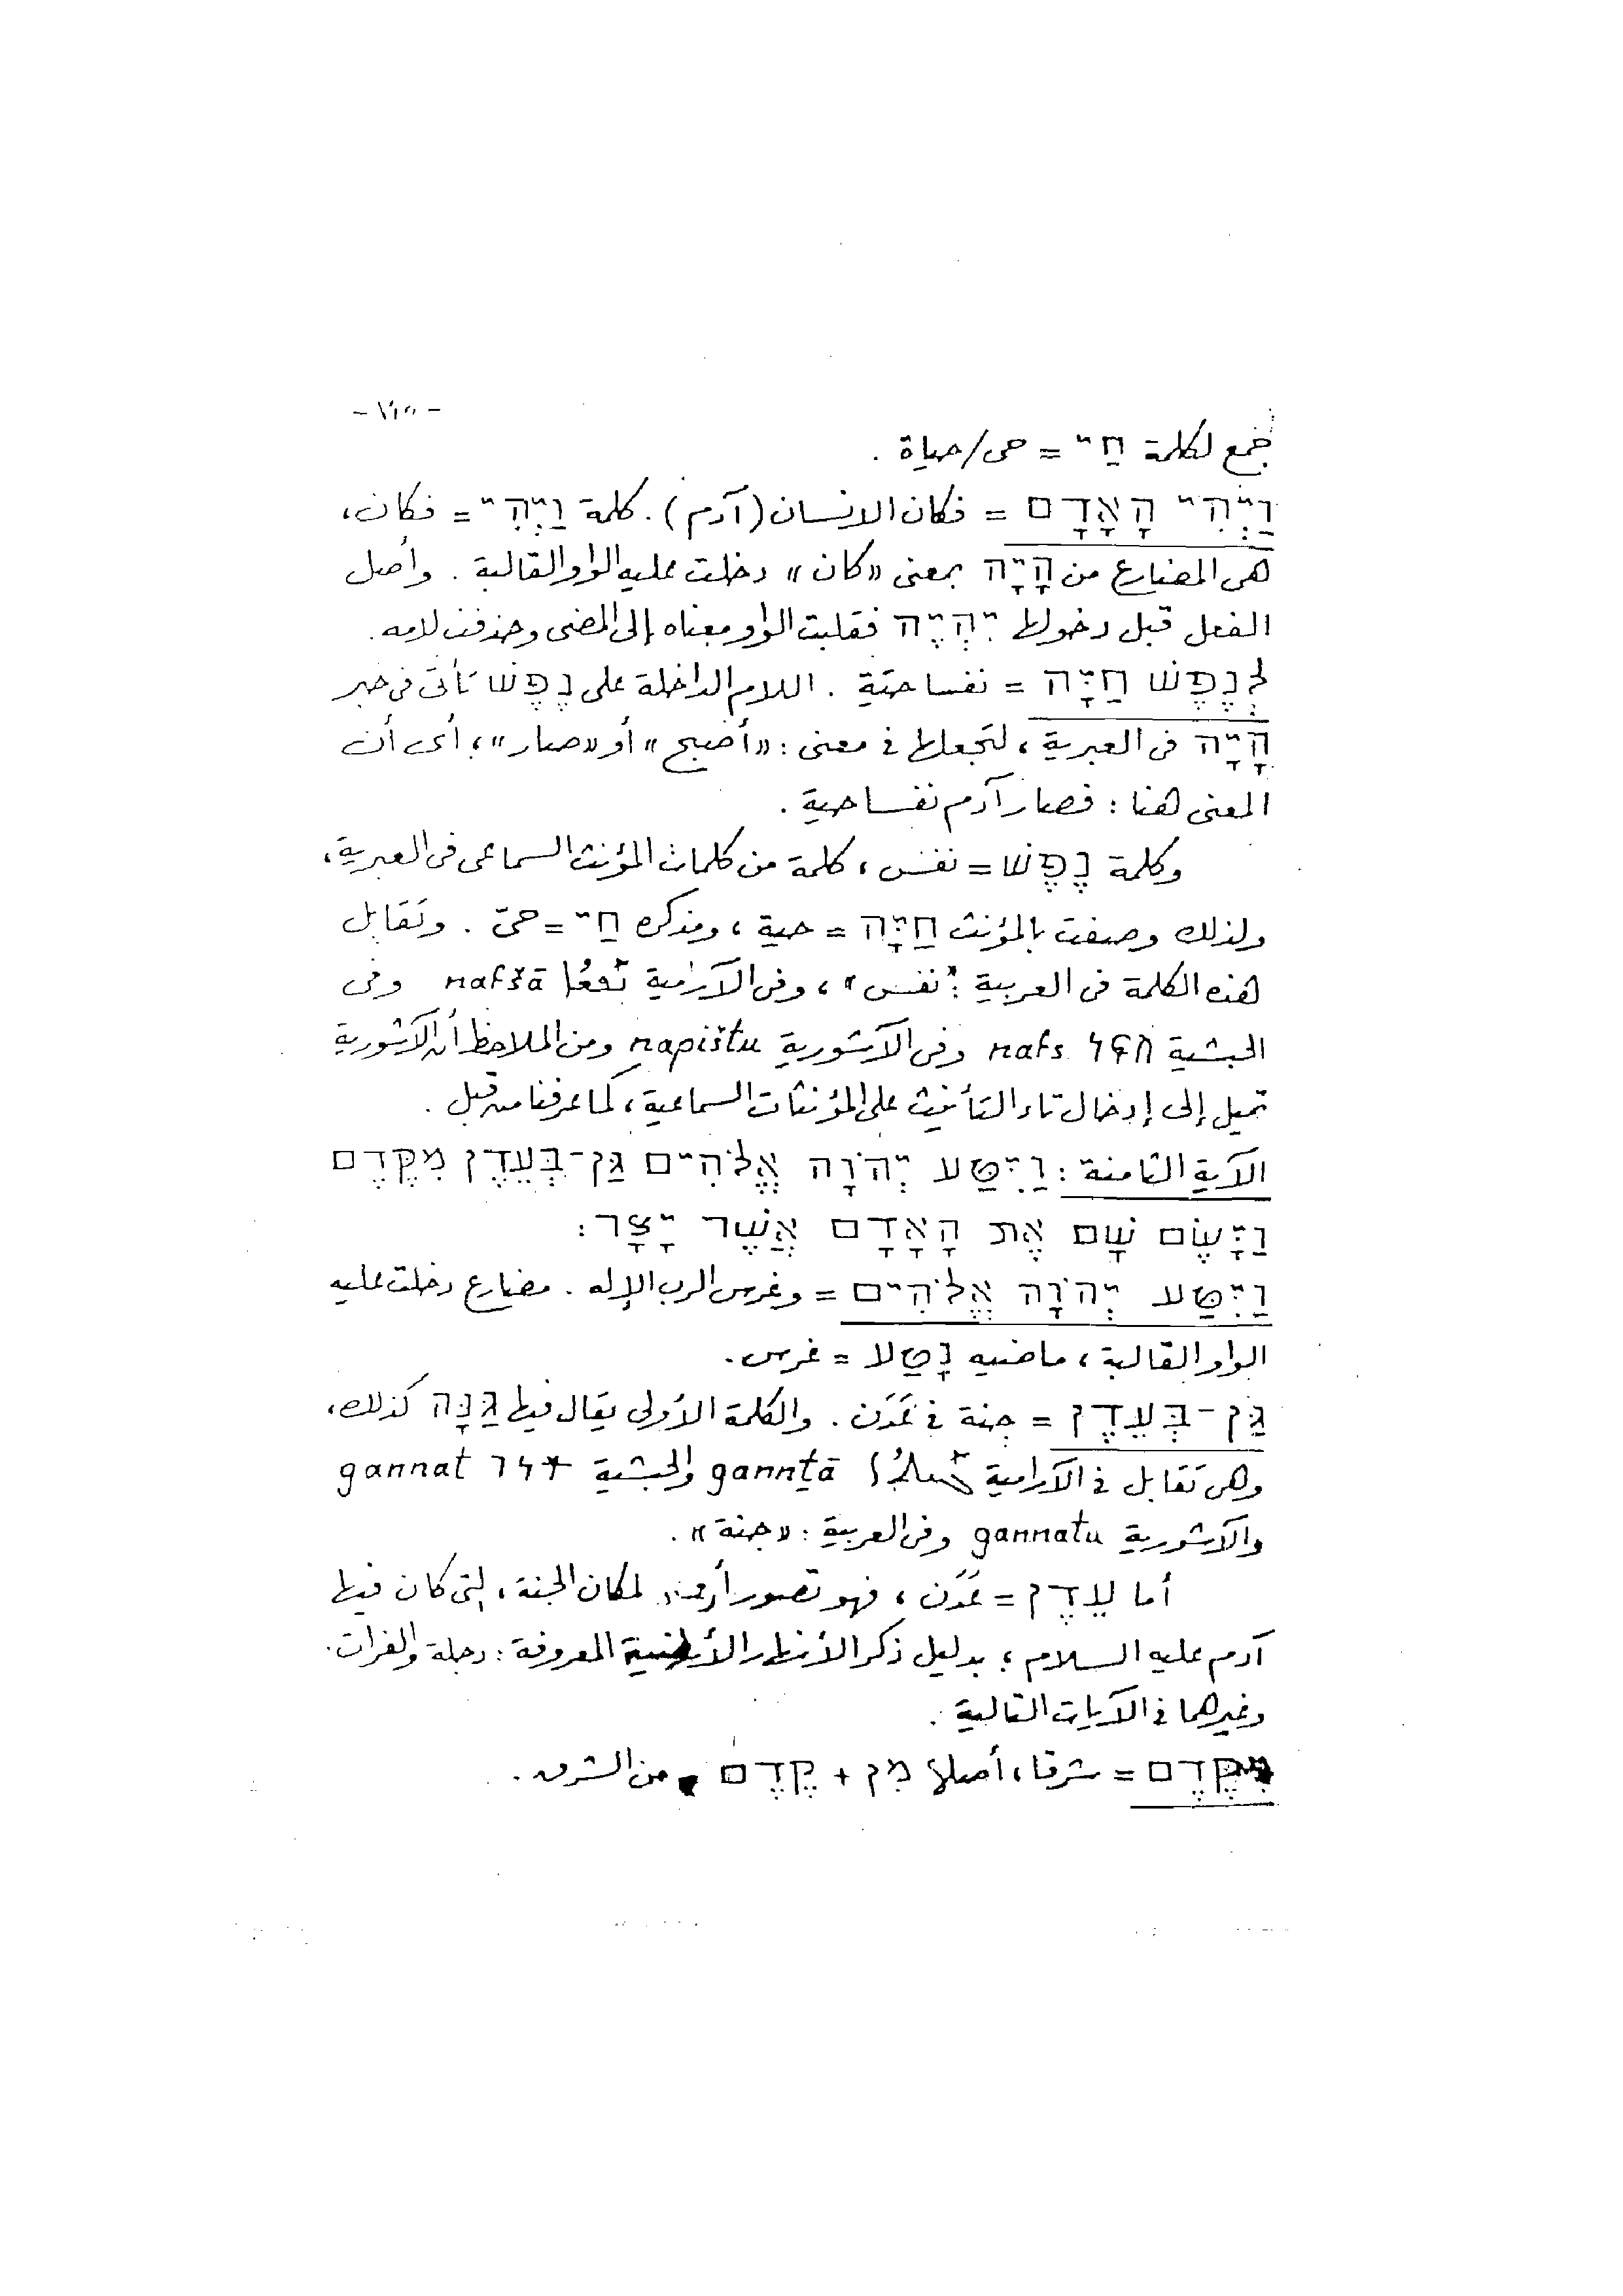 جمع لكلمة חַי = حى/حياة .
וַיְּהִי הָאָדָם = فكان الانسان (آدم). كلمة וַיְּהִי = فكان،
هى المضارع من הָיָה بمعنى «كان» دخلت عليه الواو القالبة . وأصل
الفعل قبل دخولها יִהְיֶה فقلبت الواو معناه إلى المضى وحذفت لامه.
לְנֶפֶשׁ חַיָּה = نفسا حيّة . اللام الداخلة على נֶפֶשׁ تأتى فى خبر
הָיָה فى العبرية ، لتجعلها فى معنى : «أصبح» أو «صار» ، أى أن
المعنى هنا : فصار آدم نفسا حية .
وكلمة נֶפֶשׁ = نفس ، كلمة من كلمات المؤنث السماعى فى العبرية،
ولذلك وصفت بالمؤنث חַיָּה = حية ، ومذكره חַי = حىّ . وتقابل
هذه الكلمة فى العربية : "نفس" ، وفى الآرامية ܢܰܦܫܳܐ nafšā وفى
الحبشية ነፍስ nafs وفى الآشورية napištu ومن الملاحظ أن الآشورية
تميل إلى إدخال تاء التأنيث على المؤنثات السماعية ، كما عرفنا من قبل .
الآية الثامنة : וַיִּטַּע יְהוָֹה אֱלֹהִים גַּן-בְּעֵדֶן מִקֶּדֶם
וַיָּשֶׂם שָׁם אֶת הָאָדָם אֲשֶׁר יָצָר:
וַיִּטַּע יְהוָֹה אֱלֹהִים = وغرس الرب الإله . مضارع دخلت عليه
الواو القالبة ، ماضيه נָטַע = غرس.
גַּן-בְּעֵדֶן = جنة فى عَدَن . والكلمة الأولى يقال فيها גַּנָּה كذلك،
وهى تقابل فى الآرامية ܓܰܢܬܳܐ ganntā والحبشية ገነት gannat
والآشورية gannatu وفى العربية : «جنة» .
أما עֵדֶן = عَدَن ، فهو تصور لمكان الجنة ، التى كان فيها
آدم عليه السلام ؛ بدليل ذكر الأنهار المعروفة : دجلة والفرات.
وغيرهما فى الآيات التالية .
מִקֶּדֶם = شرقا ، أصلها מִן + קֶדֶם = من الشرق .